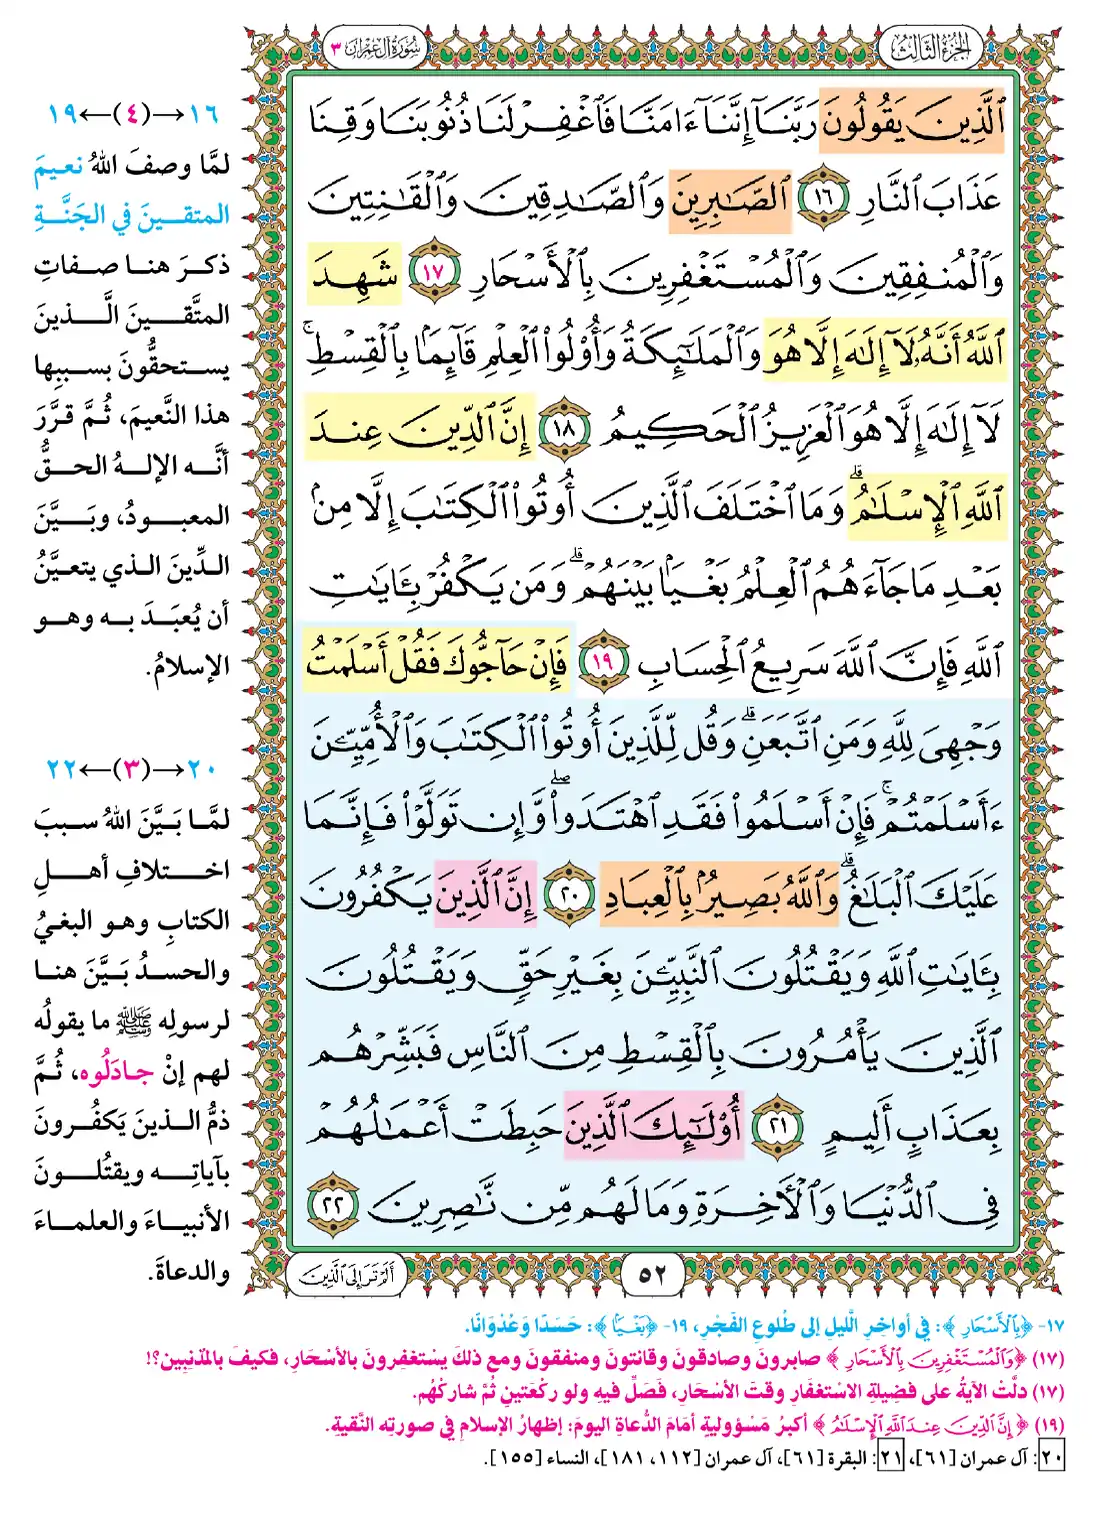 الجزء الثالث
سورة آل عمران ٣
ٱلَّذِينَ يَقُولُونَ رَبَّنَآ إِنَّنَآ ءَامَنَّا فَٱغْفِرْ لَنَا ذُنُوبَنَا وَقِنَا
عَذَابَ ٱلنَّارِ ١٦ ٱلصَّـٰبِرِينَ وَٱلصَّـٰدِقِينَ وَٱلْقَـٰنِتِينَ
وَٱلْمُنفِقِينَ وَٱلْمُسْتَغْفِرِينَ بِٱلْأَسْحَارِ ١٧ شَهِدَ
ٱللَّهُ أَنَّهُۥ لَآ إِلَـٰهَ إِلَّا هُوَ وَٱلْمَلَـٰٓئِكَةُ وَأُو۟لُوا۟ ٱلْعِلْمِ قَآئِمًۢا بِٱلْقِسْطِ ۚ
لَآ إِلَـٰهَ إِلَّا هُوَ ٱلْعَزِيزُ ٱلْحَكِيمُ ١٨ إِنَّ ٱلدِّينَ عِندَ
ٱللَّهِ ٱلْإِسْلَـٰمُ ۗ وَمَا ٱخْتَلَفَ ٱلَّذِينَ أُوتُوا۟ ٱلْكِتَـٰبَ إِلَّا مِنۢ
بَعْدِ مَا جَآءَهُمُ ٱلْعِلْمُ بَغْيًۢا بَيْنَهُمْ ۗ وَمَن يَكْفُرْ بِـَٔايَـٰتِ
ٱللَّهِ فَإِنَّ ٱللَّهَ سَرِيعُ ٱلْحِسَابِ ١٩ فَإِنْ حَآجُّوكَ فَقُلْ أَسْلَمْتُ
وَجْهِىَ لِلَّهِ وَمَنِ ٱتَّبَعَنِ ۗ وَقُل لِّلَّذِينَ أُوتُوا۟ ٱلْكِتَـٰبَ وَٱلْأُمِّيِّـۧنَ
ءَأَسْلَمْتُمْ ۚ فَإِنْ أَسْلَمُوا۟ فَقَدِ ٱهْتَدَوا۟ ۖ وَّإِن تَوَلَّوْا۟ فَإِنَّمَا
عَلَيْكَ ٱلْبَلَـٰغُ ۗ وَٱللَّهُ بَصِيرٌۢ بِٱلْعِبَادِ ٢٠ إِنَّ ٱلَّذِينَ يَكْفُرُونَ
بِـَٔايَـٰتِ ٱللَّهِ وَيَقْتُلُونَ ٱلنَّبِيِّـۧنَ بِغَيْرِ حَقٍّ وَيَقْتُلُونَ
ٱلَّذِينَ يَأْمُرُونَ بِٱلْقِسْطِ مِنَ ٱلنَّاسِ فَبَشِّرْهُم
بِعَذَابٍ أَلِيمٍ ٢١ أُو۟لَـٰٓئِكَ ٱلَّذِينَ حَبِطَتْ أَعْمَـٰلُهُمْ
فِى ٱلدُّنْيَا وَٱلْـَٔاخِرَةِ وَمَا لَهُم مِّن نَّـٰصِرِينَ ٢٢
٥٢
أَلَمْ تَرَ إِلَى ٱلَّذِينَ
١٦→(٤)←١٩
لمَّا وصفَ اللهُ نعيمَ
المتقينَ في الجَنَّةِ
ذكرَ هنا صفاتِ
المتَّقينَ الَّذينَ
يستحقُّونَ بسببِها
هذا النَّعيمَ، ثُمَّ قرَّرَ
أنَّه الإلهُ الحقُّ
المعبودُ، وبَيَّنَ
الدِّينَ الذي يتعيَّنُ
أن يُعبَدَ به وهو
الإسلامُ.
٢٠→(٣)←٢٢
لمَّا بَيَّنَ اللهُ سببَ
اختلافِ أهلِ
الكتابِ وهو البغيُ
والحسدُ بَيَّنَ هنا
لرسولِه ﷺ ما يقولُه
لهم إنْ جادَلُوه، ثُمَّ
ذمُّ الذينَ يَكفُرونَ
بآياتِه ويقتُلونَ
الأنبياءَ والعلماءَ
والدعاةَ.
١٧- ﴿بِٱلْأَسْحَارِ﴾: في أواخِرِ اللَّيلِ إلى طُلوعِ الفَجْرِ، ١٩- ﴿بَغْيًۢا﴾: حَسَدًا وَعُدْوَانًا.
(١٧) ﴿وَٱلْمُسْتَغْفِرِينَ بِٱلْأَسْحَارِ﴾ صابرونَ وصادقونَ وقانتونَ ومنفقونَ ومع ذلكَ يستغفرونَ بالأسْحَارِ، فكيفَ بالمُذنِبِينَ؟!
(١٧) دلَّتْ الآيةُ على فضِيلةِ الاستغفَارِ وقتَ الأسْحَارِ، فَصَلِّ فيه ولو ركْعَتينِ ثُمَّ شاركْهُم.
(١٩) ﴿إِنَّ ٱلدِّينَ عِندَ ٱللَّهِ ٱلْإِسْلَـٰمُ﴾ أكبرُ مَسْؤوليةٍ أمَامَ الدُّعاةِ اليومَ: إظهارُ الإسلامِ في صورتِه النَّقيةِ.
٢٠: آل عمران [٦١]، ٢١: البقرة [٦١]، آل عمران [١١٢، ١٨١]، النساء [١٥٥].